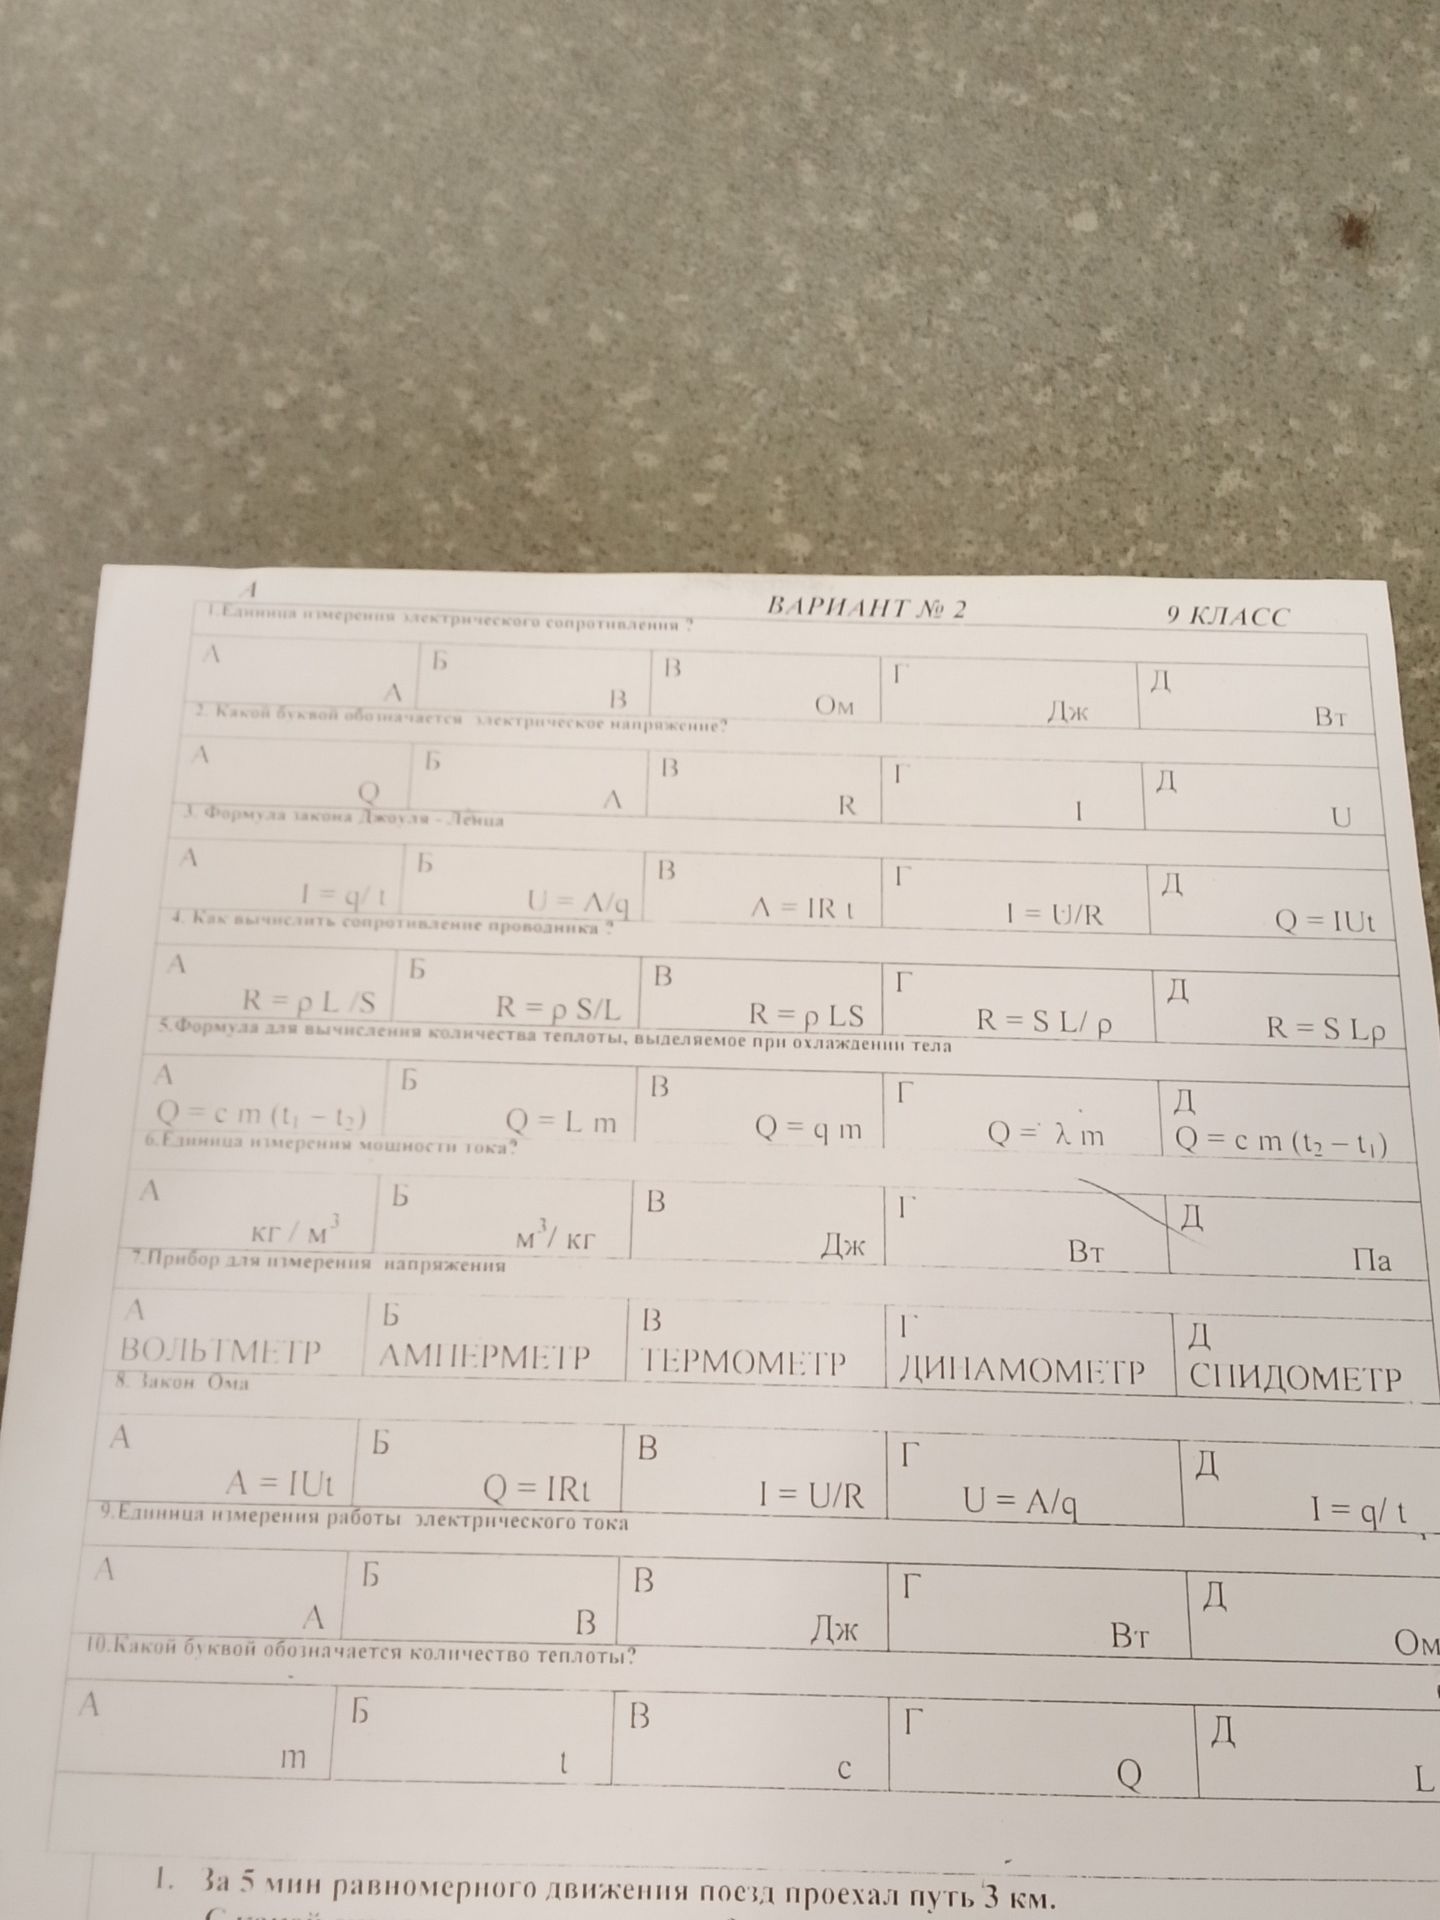 А ВАРИАНТ № 2 9 КЛАСС
1.Единица измерения электрического сопротивления ?
А Б В Г Д
А В Ом Дж Вт
2. Какой буквой обозначается электрическое напряжение?
А Б В Г Д
Q A R I U
3. Формула закона Джоуля - Ленца
А Б В Г Д
I = q/ t U = A/q A = IR t I = U/R Q = IUt
4. Как вычислить сопротивление проводника ?
А Б В Г Д
R = ρ L /S R = ρ S/L R = ρ LS R = S L/ ρ R = S Lρ
5.Формула для вычисления количества теплоты, выделяемое при охлаждении тела
А Б В Г Д
Q = c m (t₁ – t₂) Q = L m Q = q m Q = λ m Q = c m (t₂ – t₁)
6.Единица измерения мощности тока?
А Б В Г Д
кг / м³ м³/ кг Дж Вт Па
7.Прибор для измерения напряжения
А Б В Г Д
ВОЛЬТМЕТР АМПЕРМЕТР ТЕРМОМЕТР ДИНАМОМЕТР СПИДОМЕТР
8. Закон Ома
А Б В Г Д
A = IUt Q = IRt I = U/R U = A/q I = q/ t
9.Единица измерения работы электрического тока
А Б В Г Д
А В Дж Вт Ом
10.Какой буквой обозначается количество теплоты?
А Б В Г Д
m t c Q L
1. За 5 мин равномерного движения поезд проехал путь 3 км.